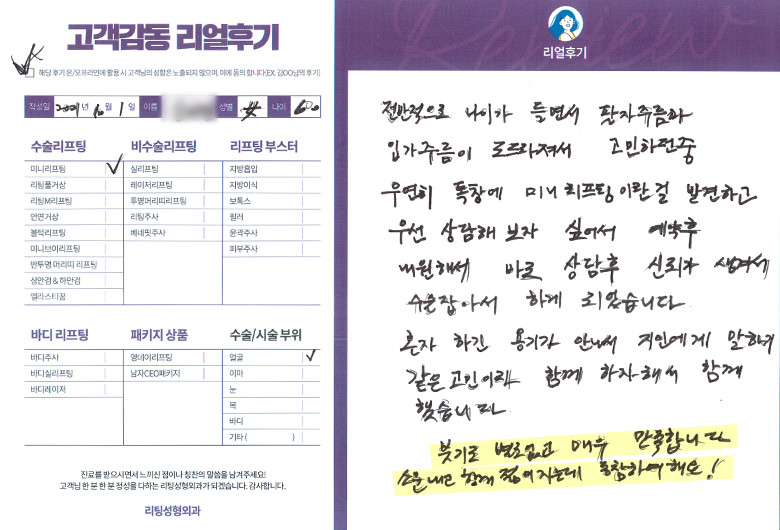 고객감동 리얼후기
해당 후기 온/오프라인에 활용 시 고객님의 성함은 노출되지 않으며, 이에 동의 합니다(EX. 김OO님의 후기)
작성일 2021년 10월 1일 이름 성별 女 나이 60
수술리프팅
미니리프팅
리팅풀거상
리팅M리프팅
안면거상
볼턱리프팅
미니브이리프팅
반투명 머리띠 리프팅
상안검 & 하안검
엘라스티꿈
비수술리프팅
실리프팅
레이저리프팅
투명머리띠리프팅
리팅주사
베네핏주사
리프팅 부스터
지방흡입
지방이식
보톡스
필러
윤곽주사
피부주사
바디 리프팅
바디주사
바디실리프팅
바디레이저
패키지 상품
영데이리프팅
남자CEO패키지
수술/시술 부위
얼굴
이마
눈
목
바디
기타 ( )
진료를 받으시면서 느끼신 점이나 칭찬의 말씀을 남겨주세요!
고객님 한 분 한 분 정성을 다하는 리팅성형외과가 되겠습니다. 감사합니다.
리팅성형외과
Review
리얼후기
전반적으로 나이가 들면서 팔자주름과
입가주름이 도드라져서 고민하던중
우연히 톡창에 미니리프팅이란걸 발견하고
우선 상담해 보자 싶어서 예약후
내원해서 바로 상담후 신뢰가 생겨서
수술잡아서 하게 되었습니다
혼자 하긴 용기가 안나서 지인에게 말하니
같은고민이라 함께 하자해서 함께
했습니다
붓기도 별로없고 매우 만족합니다
소문내고 함께 젊어지는데 동참하여해요!